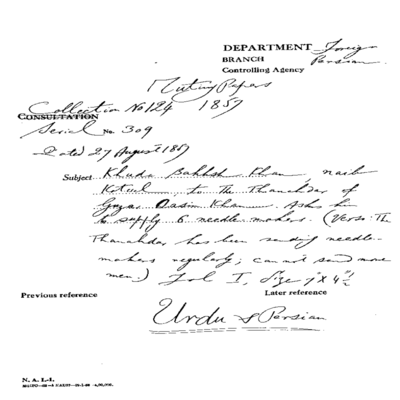 DEPARTMENT Foreign
BRANCH Persian
Controlling Agency
Mutiny Papers
Collection No 124 1857
CONSULTATION
Serial No. 309
Dated 27 August 1857
Subject Khuda Bakhsh Khan, naib
Kotwal, to the Thanahdar of
Guzar Qasim Khan. Asks him
to supply 6 needle makers. (Verso: The
Thanahdar has been sending needle-
makers regularly; cannot send more
men.) Fol. 1, Size 7" X 4½"
Previous reference Later reference
Urdu & Persian
N. A. I.-1.